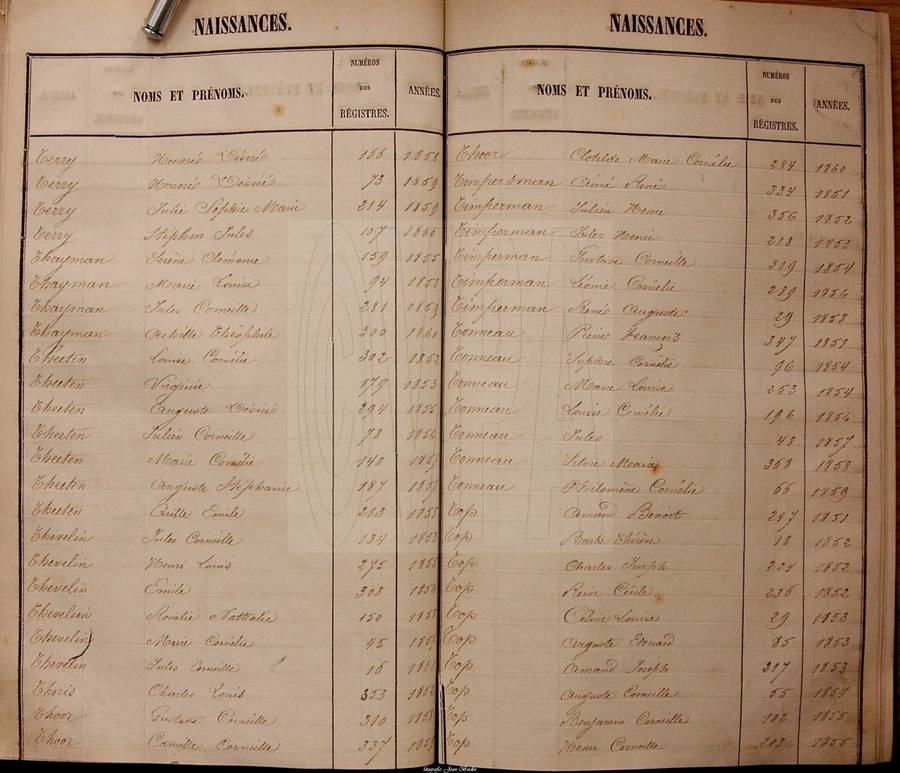 NAISSANCES.
NOMS ET PRÉNOMS. NUMÉROS DES RÉGISTRES. ANNÉES.
Terry Honoré Désiré 155
Terry Honoré Désiré 73 1859
Terry Julie Sophie Marie 214 1859
Terry Stéphin Jules 107 1860
Thayman Serène Clémence 159 1855
Thayman Marie Louise 94
Thayman Jules Corneille 281 1859
Thayman Achille Théophile 200 1860
Theeten Louise Cornélie 302 1852
Theeten Virginie 179 1853
Theeten Auguste Désiré 294 1855
Theeten Julien Corneille 78 1856
Theeten Marie Cornélie 140
Theeten Auguste Stéphanie 187
Theeten Cirille Emile 213
Thevelin Jules Corneille 134 1853
Thevelin Henri Louis 275
Thevelin Emile 308
Thevelein Rosalie Nathalie 150
Thevelin Marie Cornélie 45
Thevelin Jules Corneille 16
Thoris Charles Louis 353
Thoor Gustave Corneille 310
Thoor Camille Corneille 337
NAISSANCES.
NOMS ET PRÉNOMS. NUMÉROS DES RÉGISTRES. ANNÉES.
Thoor Clotilde Marie Cornélie 284 1860
Timpersman Aimé René 334 1851
Timperman Julien Henri 356 1852
Timperman Jules Henri 218 1853
Timperman Gustave Corneille 319 1854
Timperman Léonie Cornélie 239 1856
Timperman René Auguste 29 1858
Tonneau Pierre François 347 1851
Tonneau Sophie Cornélie 96 1854
Tonneau Marie Louise 253 1854
Tonneau Louise Cornélie 196 1856
Tonneau Jules 48 1857
Tonneau Silvie Marie 358 1858
Tonneau Philomène Cornélie 66 1859
Top Amand Benoit 247 1851
Top Thérèse 18 1852
Top Charles Joseph 224 1852
Top Reine Cécile 235 1852
Top Céline Louise 29 1853
Top Auguste Edouard 85 1853
Top Amand Joseph 217 1853
Top Auguste Corneille 55 1854
Top Benjamin Corneille 102 1855
Top Henri Corneille 203 1855